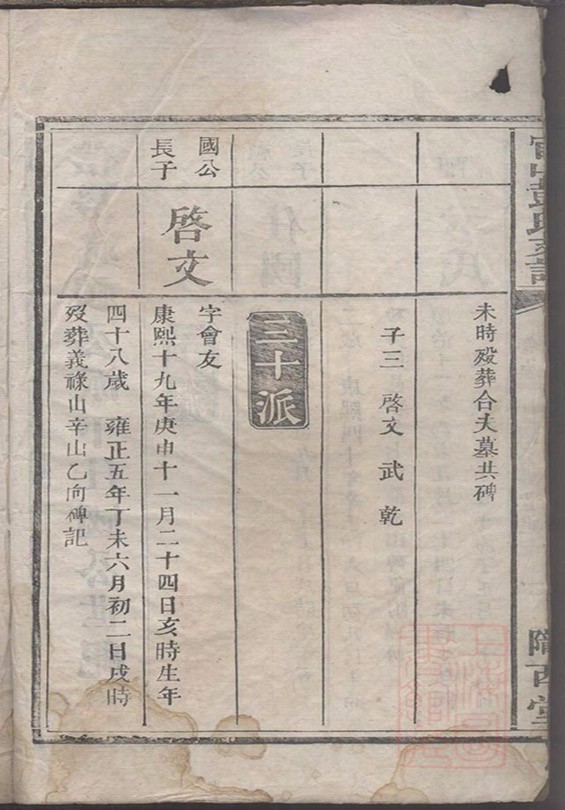 彭氏支譜
隴西堂
未時殁葬合夫墓共碑
子三 啓文 武 乾
三十派
國公
長子
啓文
字會友
康熙十九年庚申十一月二十四日亥時生年
四十八歲 雍正五年丁未六月初二日戌時
殁葬義祿山辛山乙向碑記